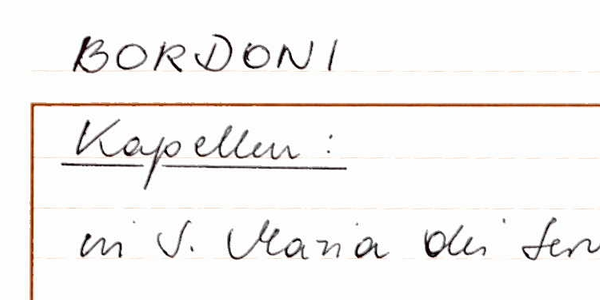 BORDONI
Kapellen :
in S. Maria dei Serv